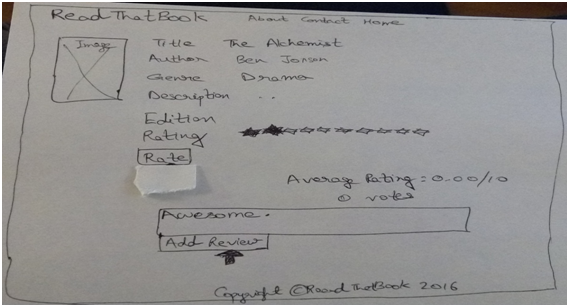 ReadThatBook About Contact Home
Image
Title The Alchemist
Author Ben Jonson
Genre Drama
Description ..
Edition
Rating
Rate
Average Rating : 0.00/10
0 votes
Awesome.
Add Review
Copyright ©ReadThatBook 2016